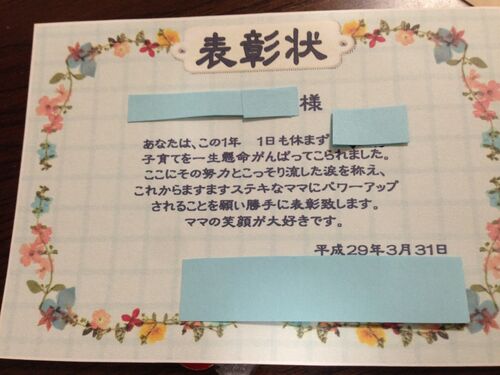 表彰状
様
あなたは、この1年 1日も休まず
子育てを一生懸命がんばってこられました。
ここにその努力とこっそり流した涙を称え、
これからますますステキなママにパワーアップ
されることを願い勝手に表彰致します。
ママの笑顔が大好きです。
平成29年3月31日